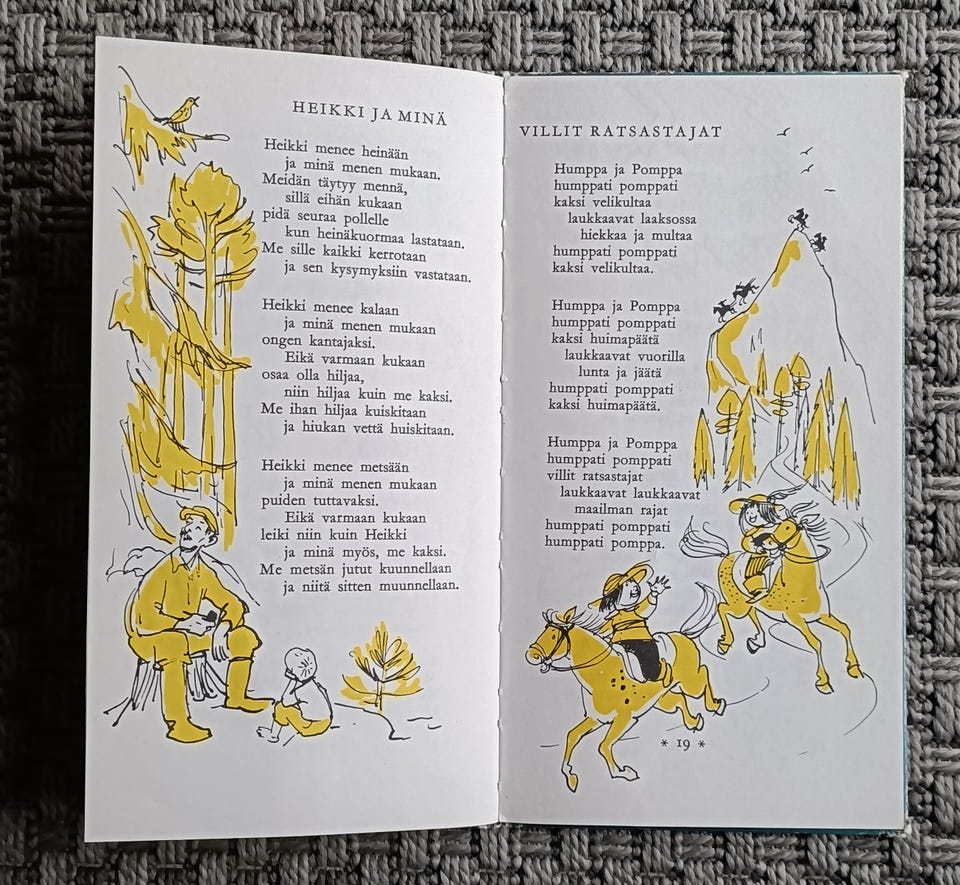 HEIKKI JA MINÄ
Heikki menee heinään
ja minä menen mukaan.
Meidän täytyy mennä,
sillä eihän kukaan
pidä seuraa pollelle
kun heinäkuormaa lastataan.
Me sille kaikki kerrotaan
ja sen kysymyksiin vastataan.
Heikki menee kalaan
ja minä menen mukaan
ongen kantajaksi.
Eikä varmaan kukaan
osaa olla hiljaa,
niin hiljaa kuin me kaksi.
Me ihan hiljaa kuiskitaan
ja hiukan vettä huiskitaan.
Heikki menee metsään
ja minä menen mukaan
puiden tuttavaksi.
Eikä varmaan kukaan
leiki niin kuin Heikki
ja minä myös, me kaksi.
Me metsän jutut kuunnellaan
ja niitä sitten muunnellaan.
VILLIT RATSASTAJAT
Humppa ja Pomppa
humppati pomppati
kaksi velikultaa
laukkaavat laaksossa
hiekkaa ja multaa
humppati pomppati
kaksi velikultaa.
Humppa ja Pomppa
humppati pomppati
kaksi huimapäätä
laukkaavat vuorilla
lunta ja jäätä
humppati pomppati
kaksi huimapäätä.
Humppa ja Pomppa
humppati pomppati
villit ratsastajat
laukkaavat laukkaavat
maailman rajat
humppati pomppati
humppati pomppa.
* 19 *